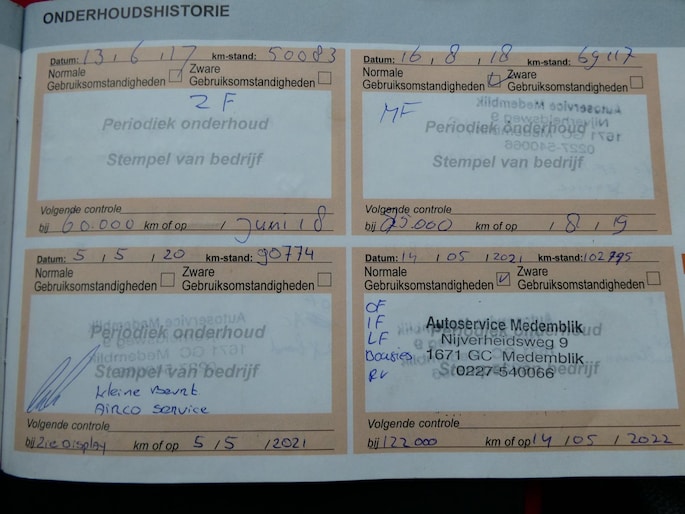 ONDERHOUDSHISTORIE
Datum: 13 , 6 , 17 km-stand: 50083
Normale Gebruiksomstandigheden Zware Gebruiksomstandigheden
2 F
Periodiek onderhoud
Stempel van bedrijf
Volgende controle
bij 60.000 km of op / juni 18
Datum: 16 , 8 , 18 km-stand: 69117
Normale Gebruiksomstandigheden Zware Gebruiksomstandigheden
MF
Periodiek onderhoud
Stempel van bedrijf
Volgende controle
bij 85.000 km of op / 8 , 19
Datum: 5 , 5 , 20 km-stand: 90774
Normale Gebruiksomstandigheden Zware Gebruiksomstandigheden
Periodiek onderhoud
Stempel van bedrijf
kleine Beurt
Airco service
Volgende controle
bij Zie Display km of op 5 / 5 / 2021
Datum: 14 , 05 , 2021 km-stand: 102795
Normale Gebruiksomstandigheden Zware Gebruiksomstandigheden
OF
IF
LF
Bousies
RV
Autoservice Medemblik
Nijverheidsweg 9
1671 GC Medemblik
0227-540066
Periodiek onderhoud
Stempel van bedrijf
Volgende controle
bij 122000 km of op 14 / 05 / 2022